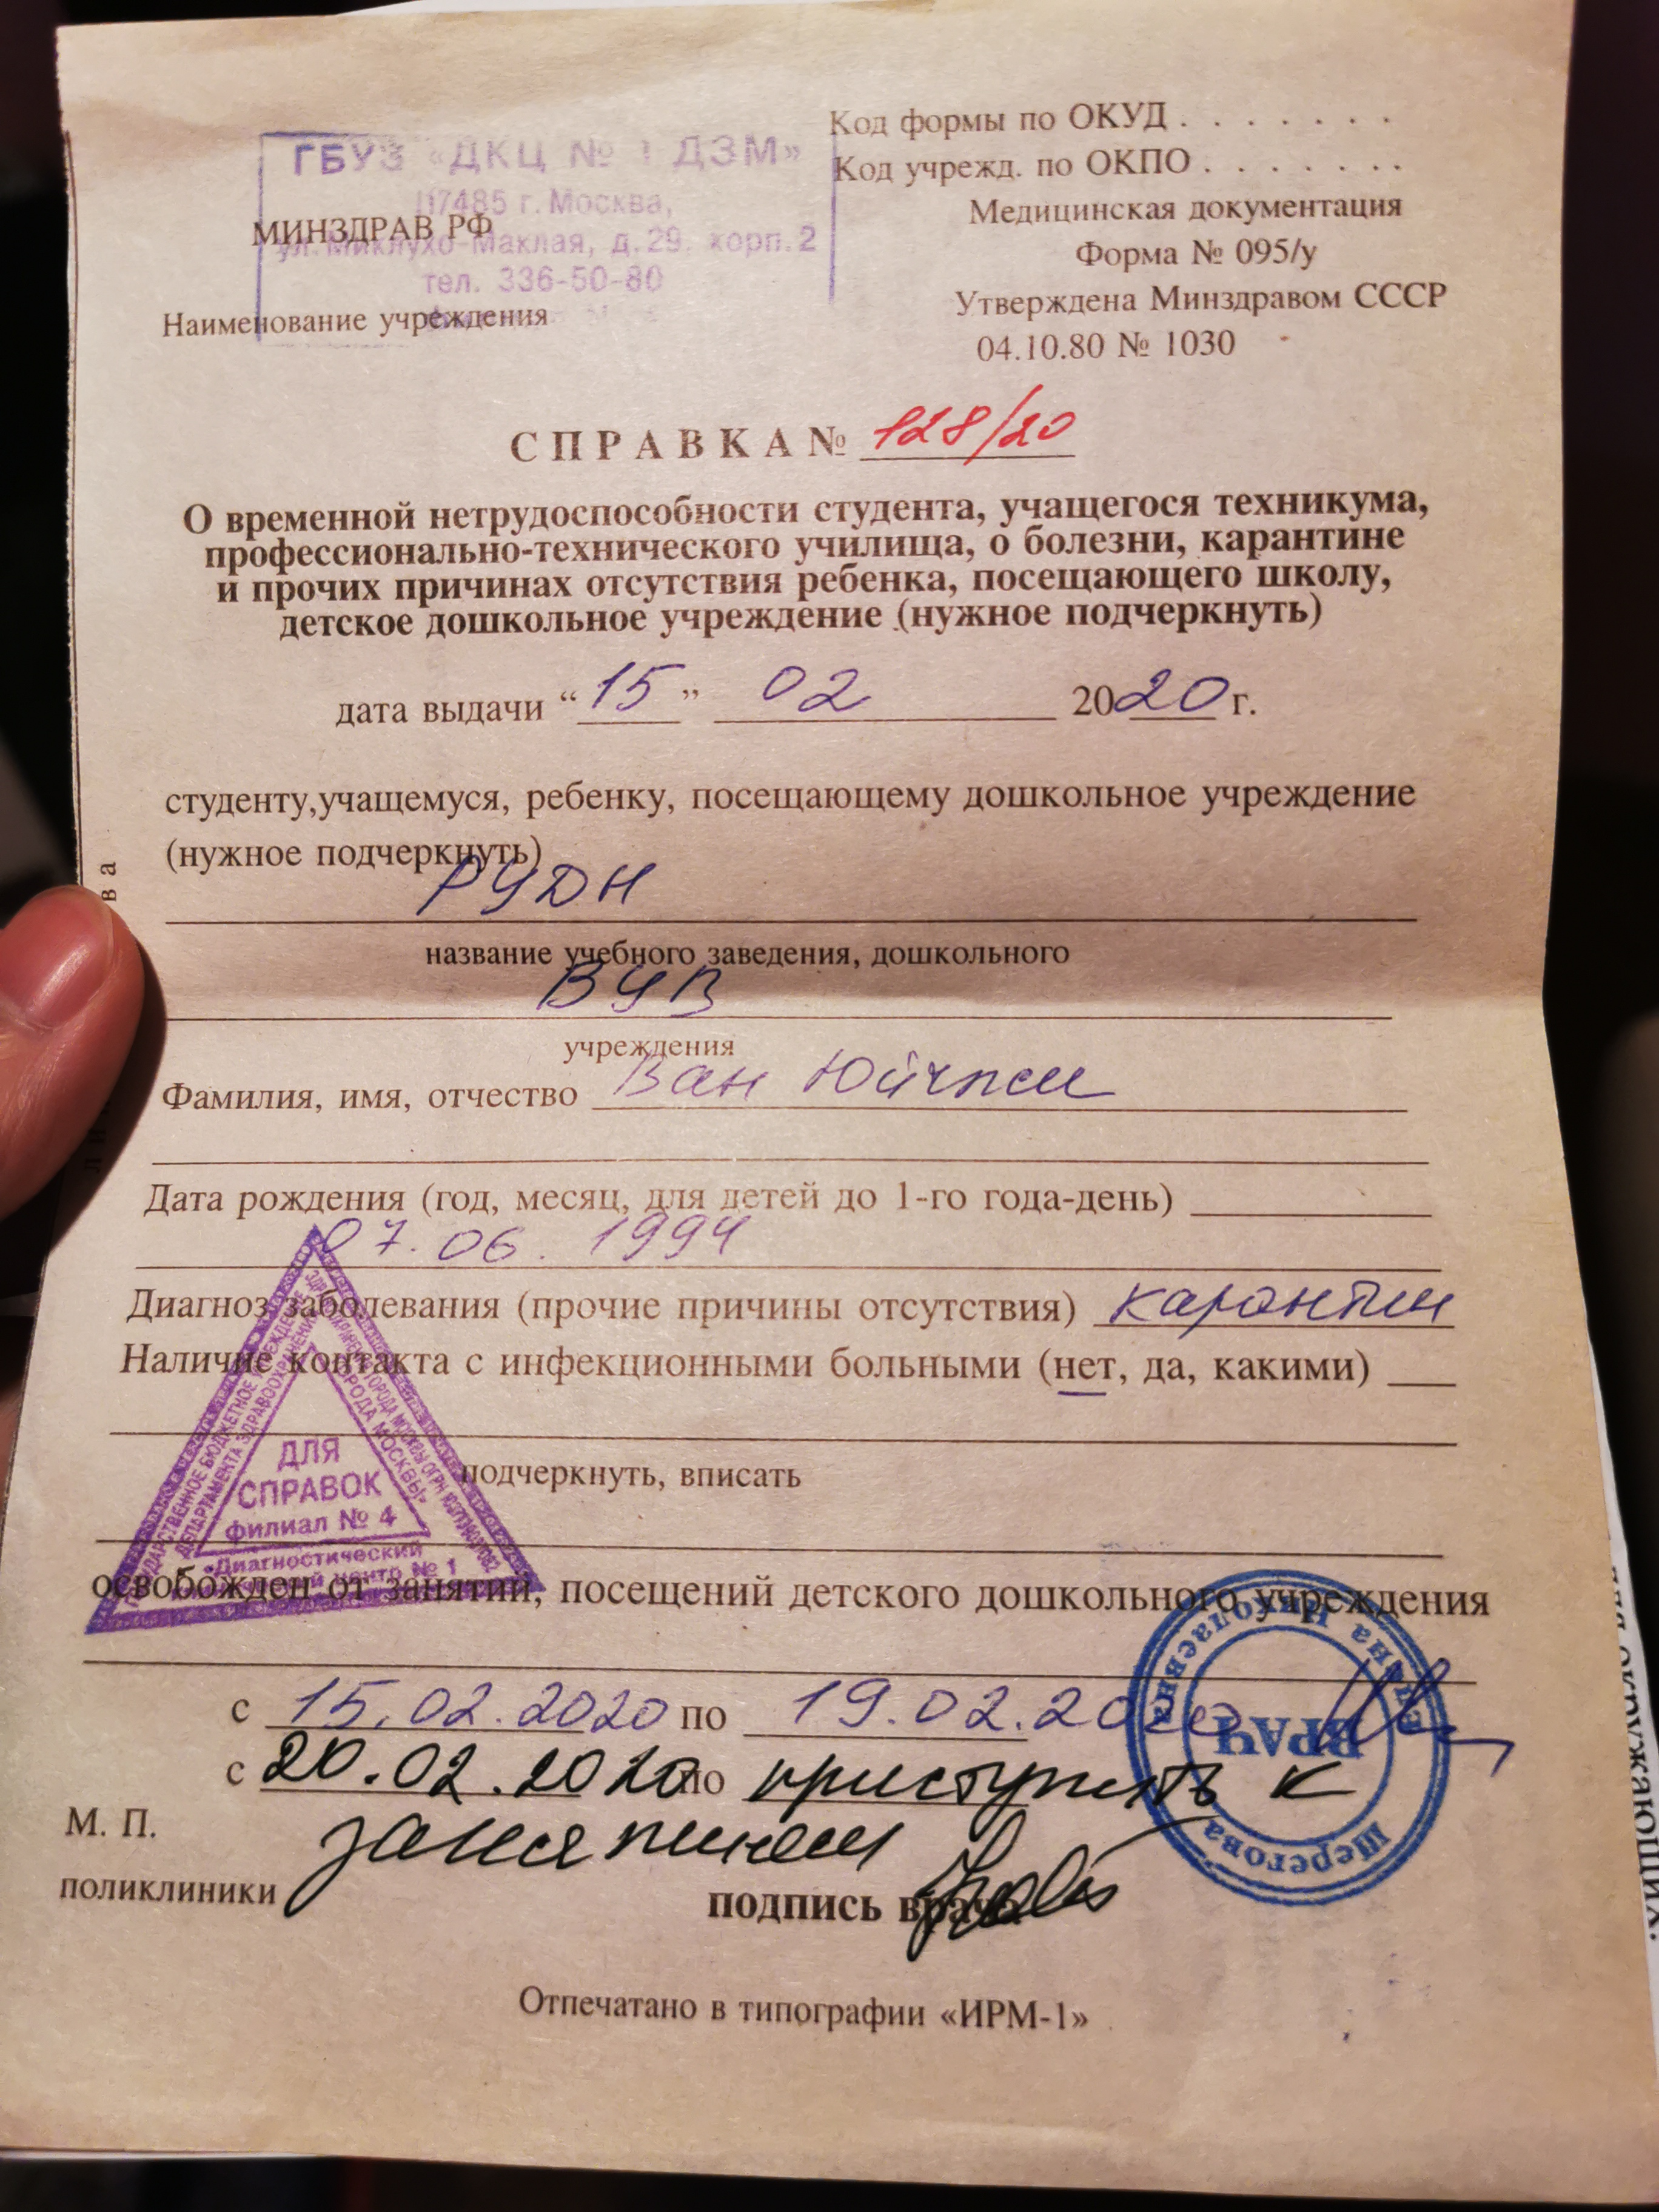 ГБУЗ «ДКЦ № 1 ДЗМ»
117485 г. Москва,
ул. Миклухо-Маклая, д.29. корп.2
тел. 336-50-80
МИНЗДРАВ РФ
Наименование учреждения
Код формы по ОКУД . . . . . . .
Код учрежд. по ОКПО . . . . . . .
Медицинская документация
Форма № 095/у
Утверждена Минздравом СССР
04.10.80 № 1030
СПРАВКА № 128/20
О временной нетрудоспособности студента, учащегося техникума,
профессионально-технического училища, о болезни, карантине
и прочих причинах отсутствия ребенка, посещающего школу,
детское дошкольное учреждение (нужное подчеркнуть)
дата выдачи “15” 02 2020 г.
студенту,учащемуся, ребенку, посещающему дошкольное учреждение
(нужное подчеркнуть)
РУДН
название учебного заведения, дошкольного
учреждения
Фамилия, имя, отчество Ван
Дата рождения (год, месяц, для детей до 1-го года-день)
07.06.1994
Диагноз заболевания (прочие причины отсутствия) карантин
Наличие контакта с инфекционными больными (нет, да, какими)
подчеркнуть, вписать
ДЛЯ
СПРАВОК
филиал № 4
«Диагностический
центр № 1
освобожден от занятий, посещений детского дошкольного учреждения
с 15.02.2020 по 19.02.2020
с 20.02.2020 по приступить к
занятиям
М. П.
поликлиники
подпись врача
ВРАЧ
Николаевна
Шерегова
Отпечатано в типографии «ИРМ-1»